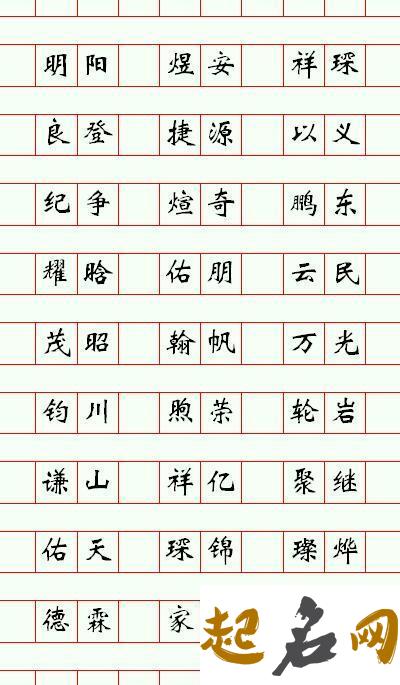 明阳 煜安 祥琛
良登 捷源 以义
纪争 煊奇 鹏东
耀晗 佑朋 云民
茂昭 翰帆 万光
钧川 煦荣 轮岩
谦山 祥亿 聚继
佑天 琛锦 璨烨
德霖 家
起名网